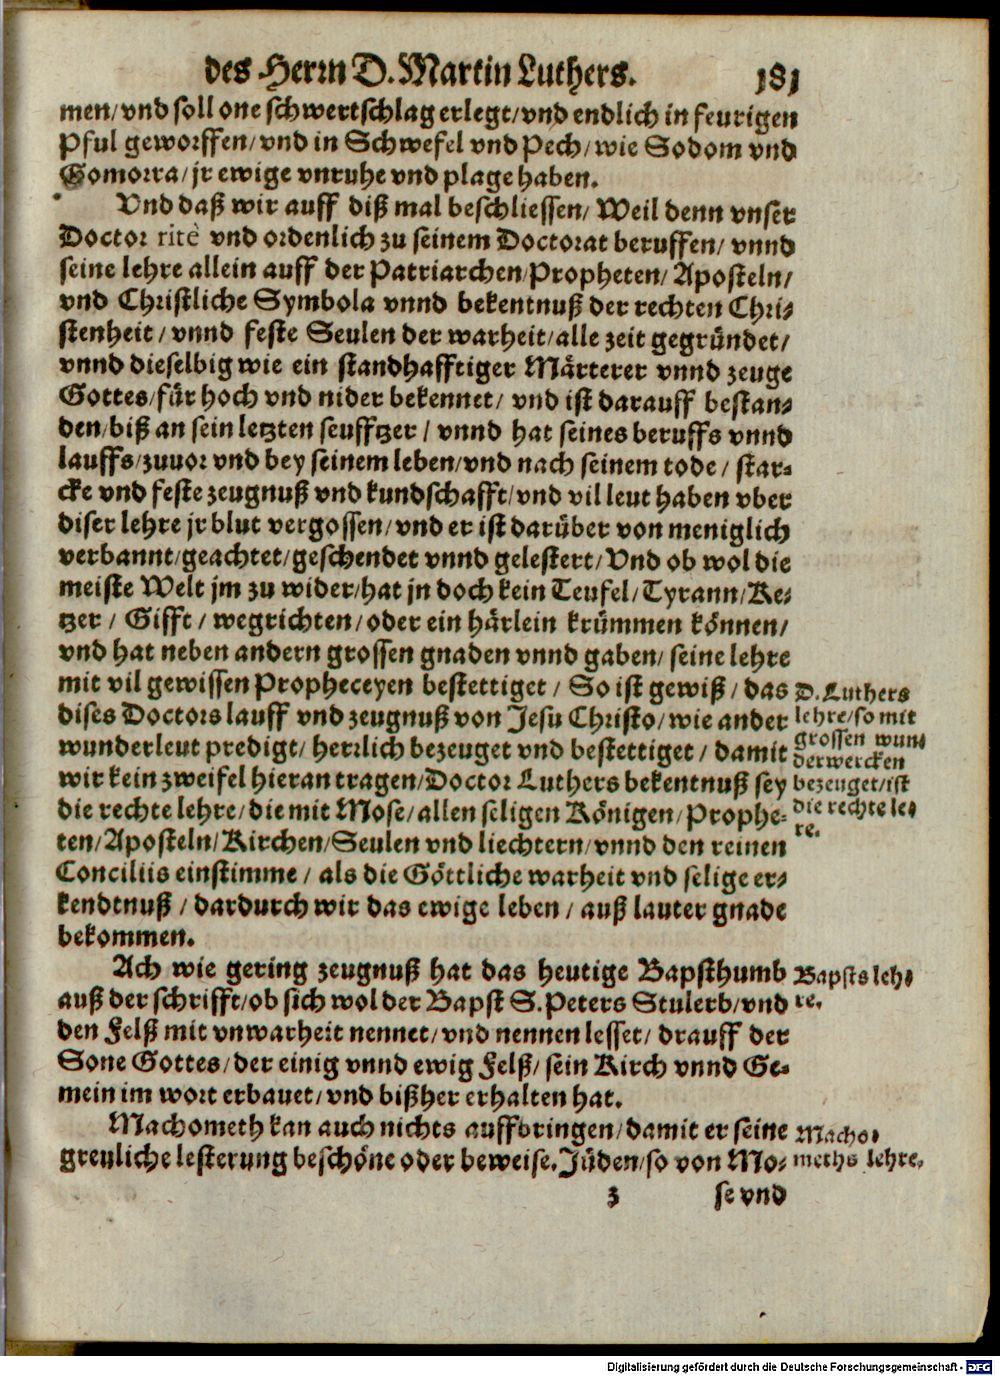 des Herrn D. Martin Luthers. 181
men/vnd soll one schwertschlag erlegt/vnd endlich in feurigen
Pful geworffen/vnd in Schwefel vnd Pech/wie Sodom vnd
Gomorra/jr ewige vnruhe vnd plage haben.
Vnd daß wir auff diß mal beschliessen/Weil denn vnser
Doctor ritè vnd ordenlich zu seinem Doctorat beruffen/vnnd
seine lehre allein auff der Patriarchen/Propheten/Aposteln/
vnd Christliche Symbola vnnd bekentnuß der rechten Chri-
stenheit/vnnd feste Seulen der warheit/alle zeit gegründet/
vnnd dieselbig wie ein standhafftiger Märterer vnnd zeuge
Gottes/für hoch vnd nider bekennet/vnd ist darauff bestan-
den/biß an sein letzten seufftzer/vnnd hat seines beruffs vnnd
lauffs/zuuor vnd bey seinem leben/vnd nach seinem tode/star-
cke vnd feste zeugnuß vnd kundschafft/vnd vil leut haben vber
diser lehre jr blut vergossen/vnd er ist darüber von meniglich
verbannt/geachtet/geschendet vnnd gelestert/Vnd ob wol die
meiste Welt jm zu wider/hat jn doch kein Teufel/Tyrann/Ke-
tzer/Gifft/wegrichten/oder ein härlein krümmen können/
vnd hat neben andern grossen gnaden vnnd gaben/seine lehre
mit vil gewissen Propheceyen bestettiget/So ist gewiß/das
dises Doctors lauff vnd zeugnuß von Jesu Christo/wie ander
wunderleut predigt/herrlich bezeuget vnd bestettiget/damit
wir kein zweifel hieran tragen/Doctor Luthers bekentnuß sey
die rechte lehre/die mit Mose/allen seligen Königen/Prophe-
ten/Aposteln/Kirchen/Seulen vnd liechtern/vnnd den reinen
Conciliis einstimme/als die Göttliche warheit vnd selige er-
kendtnuß/dardurch wir das ewige leben/auß lauter gnade
bekommen.
D. Luthers
lehre/so mit
grossen wun-
derwercken
bezeuget/ist
die rechte le-
re.
Ach wie gering zeugnuß hat das heutige Bapsthumb
auß der schrifft/ob sich wol der Bapst S. Peters Stulerb/vnd
den Felß mit vnwarheit nennet/vnd nennen lesset/drauff der
Sone Gottes/der einig vnnd ewig Felß/sein Kirch vnnd Ge-
mein im wort erbauet/vnd bißher erhalten hat.
Bapsts leh-
re.
Machometh kan auch nichts auffbringen/damit er seine
greuliche lesterung beschöne oder beweise. Jüden/so von Mo-
Macho-
meths lehre.
z se vnd
Digitalisierung gefördert durch die Deutsche Forschungsgemeinschaft - DFG